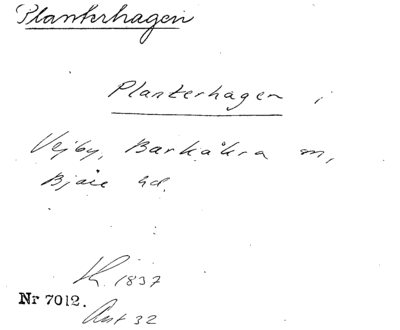 Planterhagen
Planterhagen i
Vejby, Barkåkra sn,
Bjäre hd.
1837
Nr 7012.
Akt 32